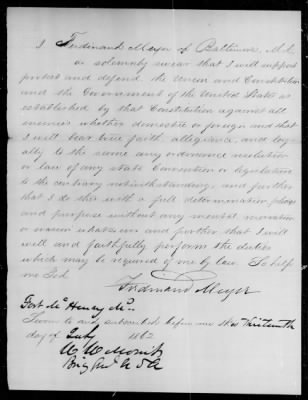 I Ferdinand Meyer of Baltimore, Md.
do solemnly swear that I will support
protect and defend, the Union and Constitution
and the Government of the United States as
established by that Constitution against all
enemies whether domestic or foreign and that
I will bear true faith, allegiance, and loy
alty to the same any ordinance resolution
or law of any state Convention or legislature
to the contrary notwithstanding, and further
that I do this with a full determination pledge
and purpose without any mental reservation
or evasion whatsoever and further that I will
well and faithfully perform the duties
which may be required of me by law. So help
me God.
Ferdinand Meyer
Fort Mc Henry Md.
Sworn to and subscribed before me this thirteenth
day of July 1862
W. W. Morris
Brig Genl U S A